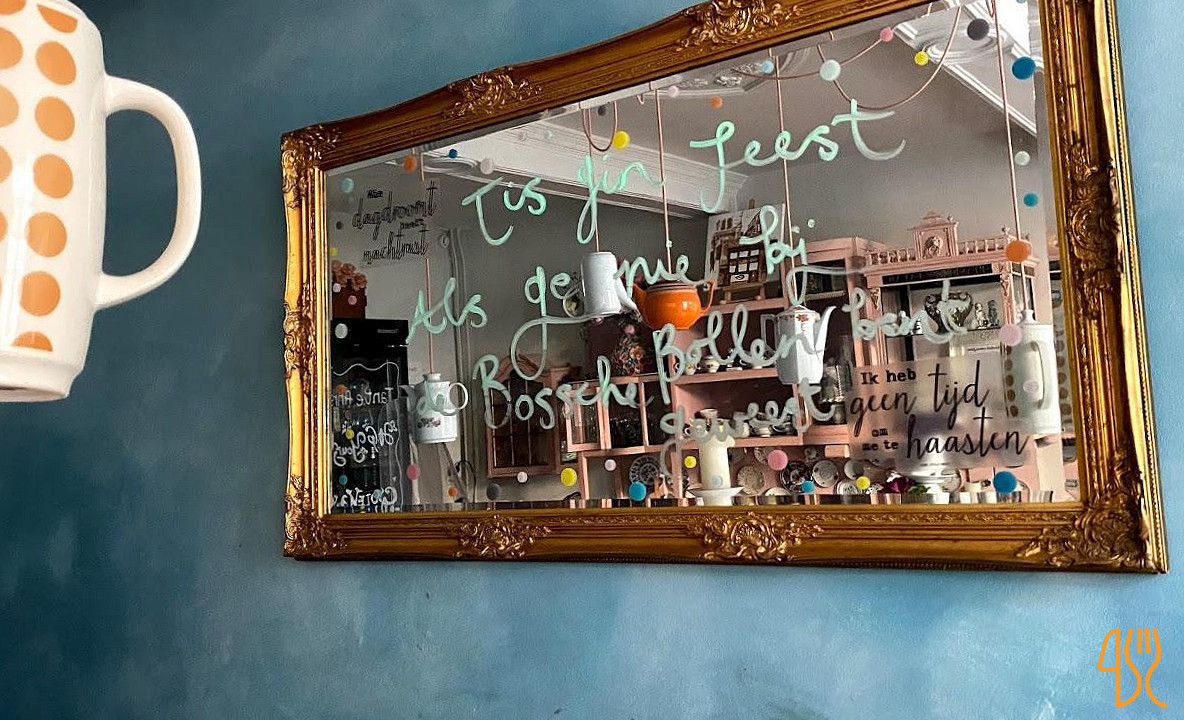 'Tis gin feest
Als ge nie bij
de Bossche Bollen bent
geweest
dagdroomt
nachtrust
Ik heb
geen tijd
om
me te haasten
Tantje